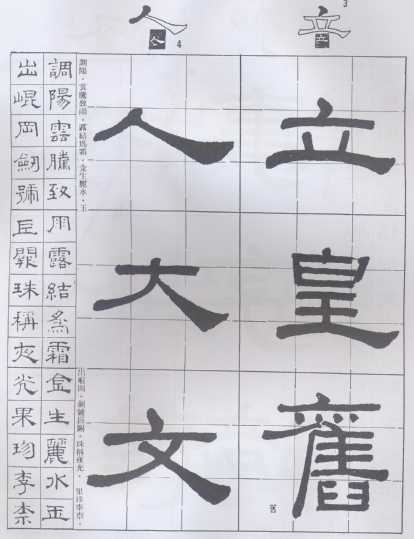 3
立
立
4
人
人
立皇舊
人大文
調陽，雲騰致雨，露結為霜，金生麗水，玉
出崐岡，劍號巨闕，珠稱夜光，果珍李柰，
調陽雲騰致雨露結為霜金生麗水玉
出崐岡劍號巨闕珠稱夜光果珍李柰